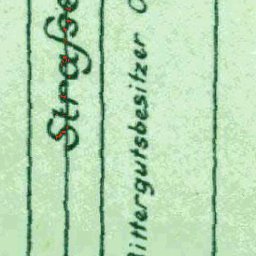 Straſse
Rittergutsbesitzer